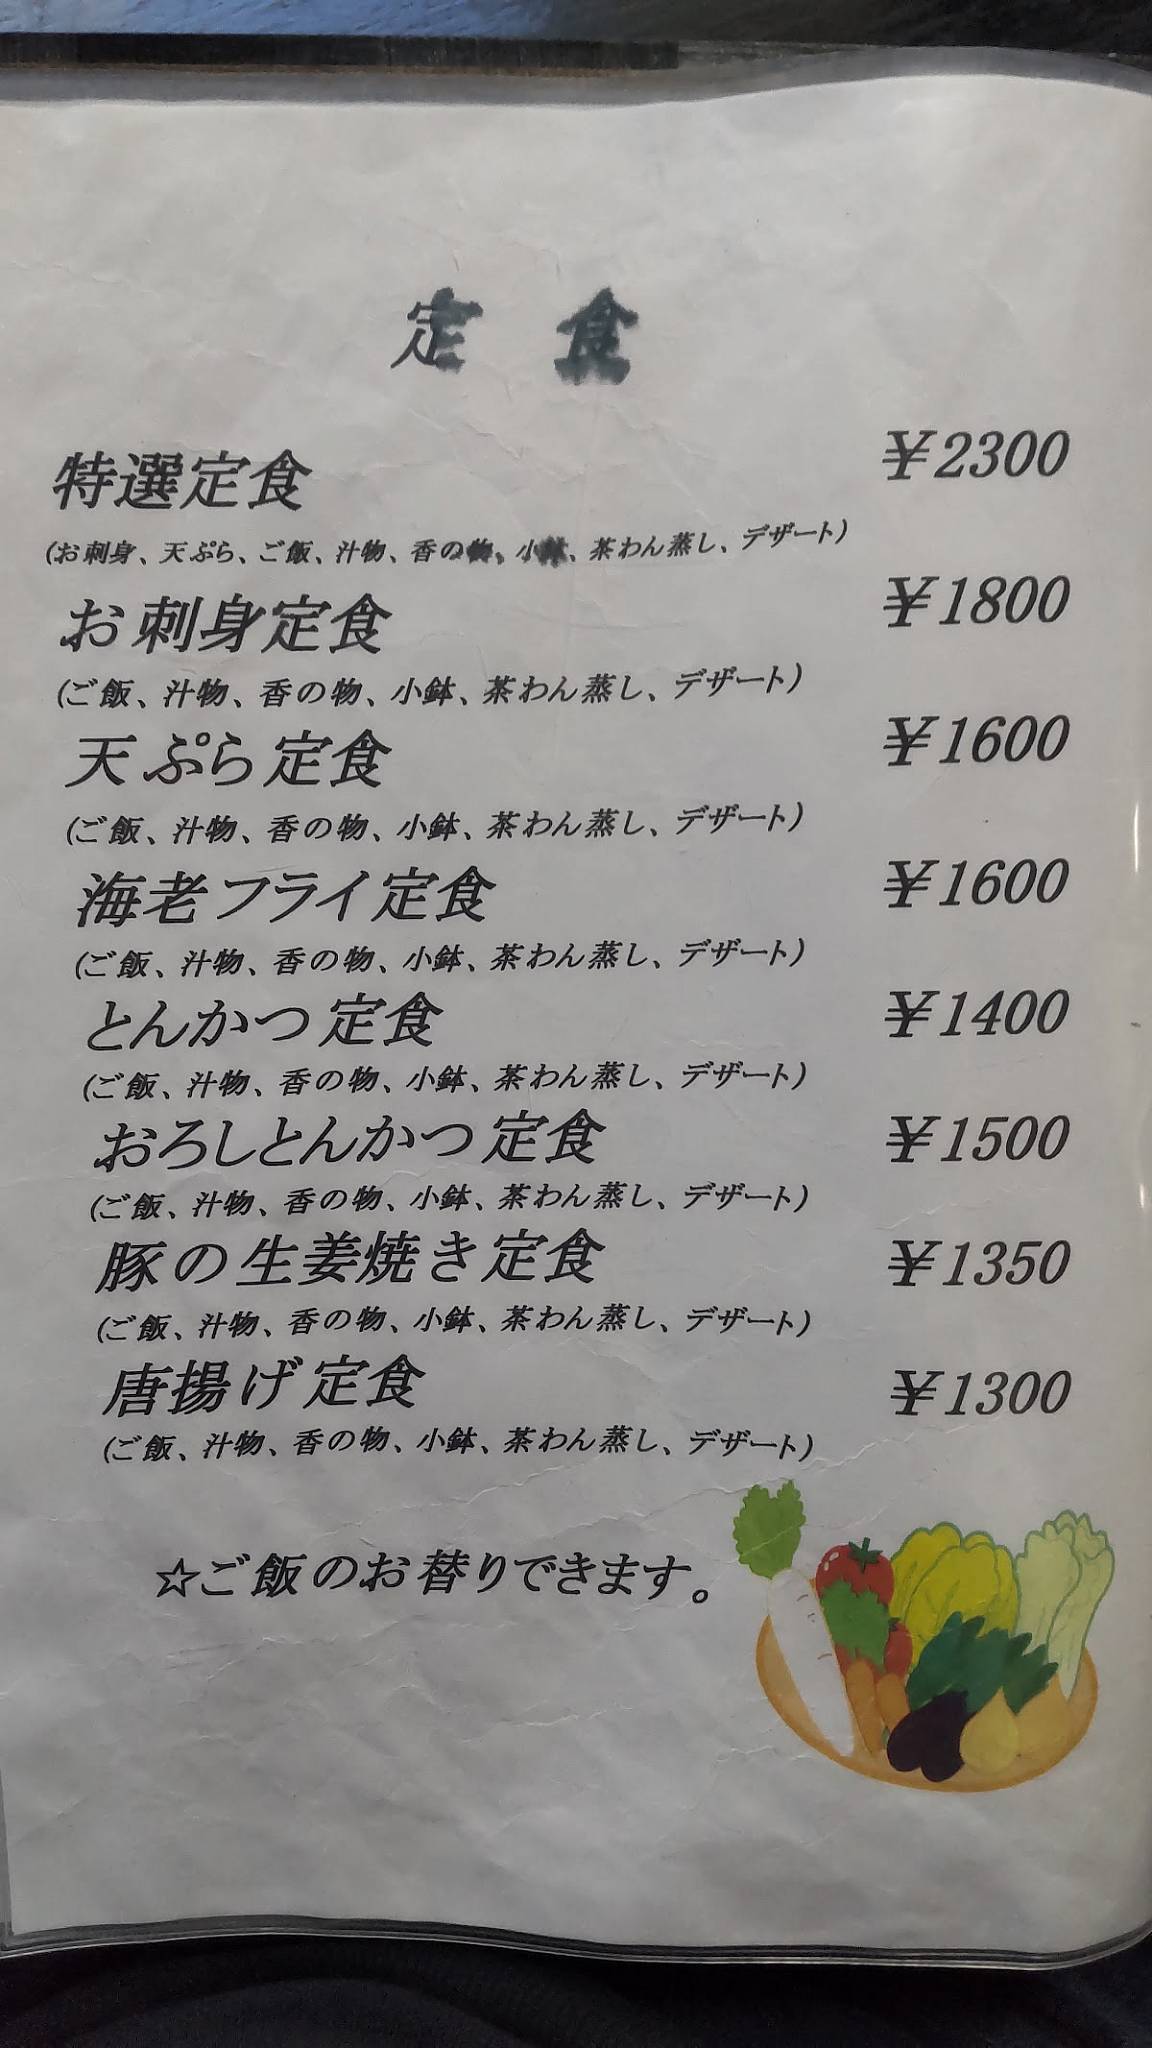 定 食
特選定食 ¥2300
(お刺身、天ぷら、ご飯、汁物、香の物、小鉢、茶わん蒸し、デザート)
お刺身定食 ¥1800
(ご飯、汁物、香の物、小鉢、茶わん蒸し、デザート)
天ぷら定食 ¥1600
(ご飯、汁物、香の物、小鉢、茶わん蒸し、デザート)
海老フライ定食 ¥1600
(ご飯、汁物、香の物、小鉢、茶わん蒸し、デザート)
とんかつ定食 ¥1400
(ご飯、汁物、香の物、小鉢、茶わん蒸し、デザート)
おろしとんかつ定食 ¥1500
(ご飯、汁物、香の物、小鉢、茶わん蒸し、デザート)
豚の生姜焼き定食 ¥1350
(ご飯、汁物、香の物、小鉢、茶わん蒸し、デザート)
唐揚げ定食 ¥1300
(ご飯、汁物、香の物、小鉢、茶わん蒸し、デザート)
☆ご飯のお替りできます。